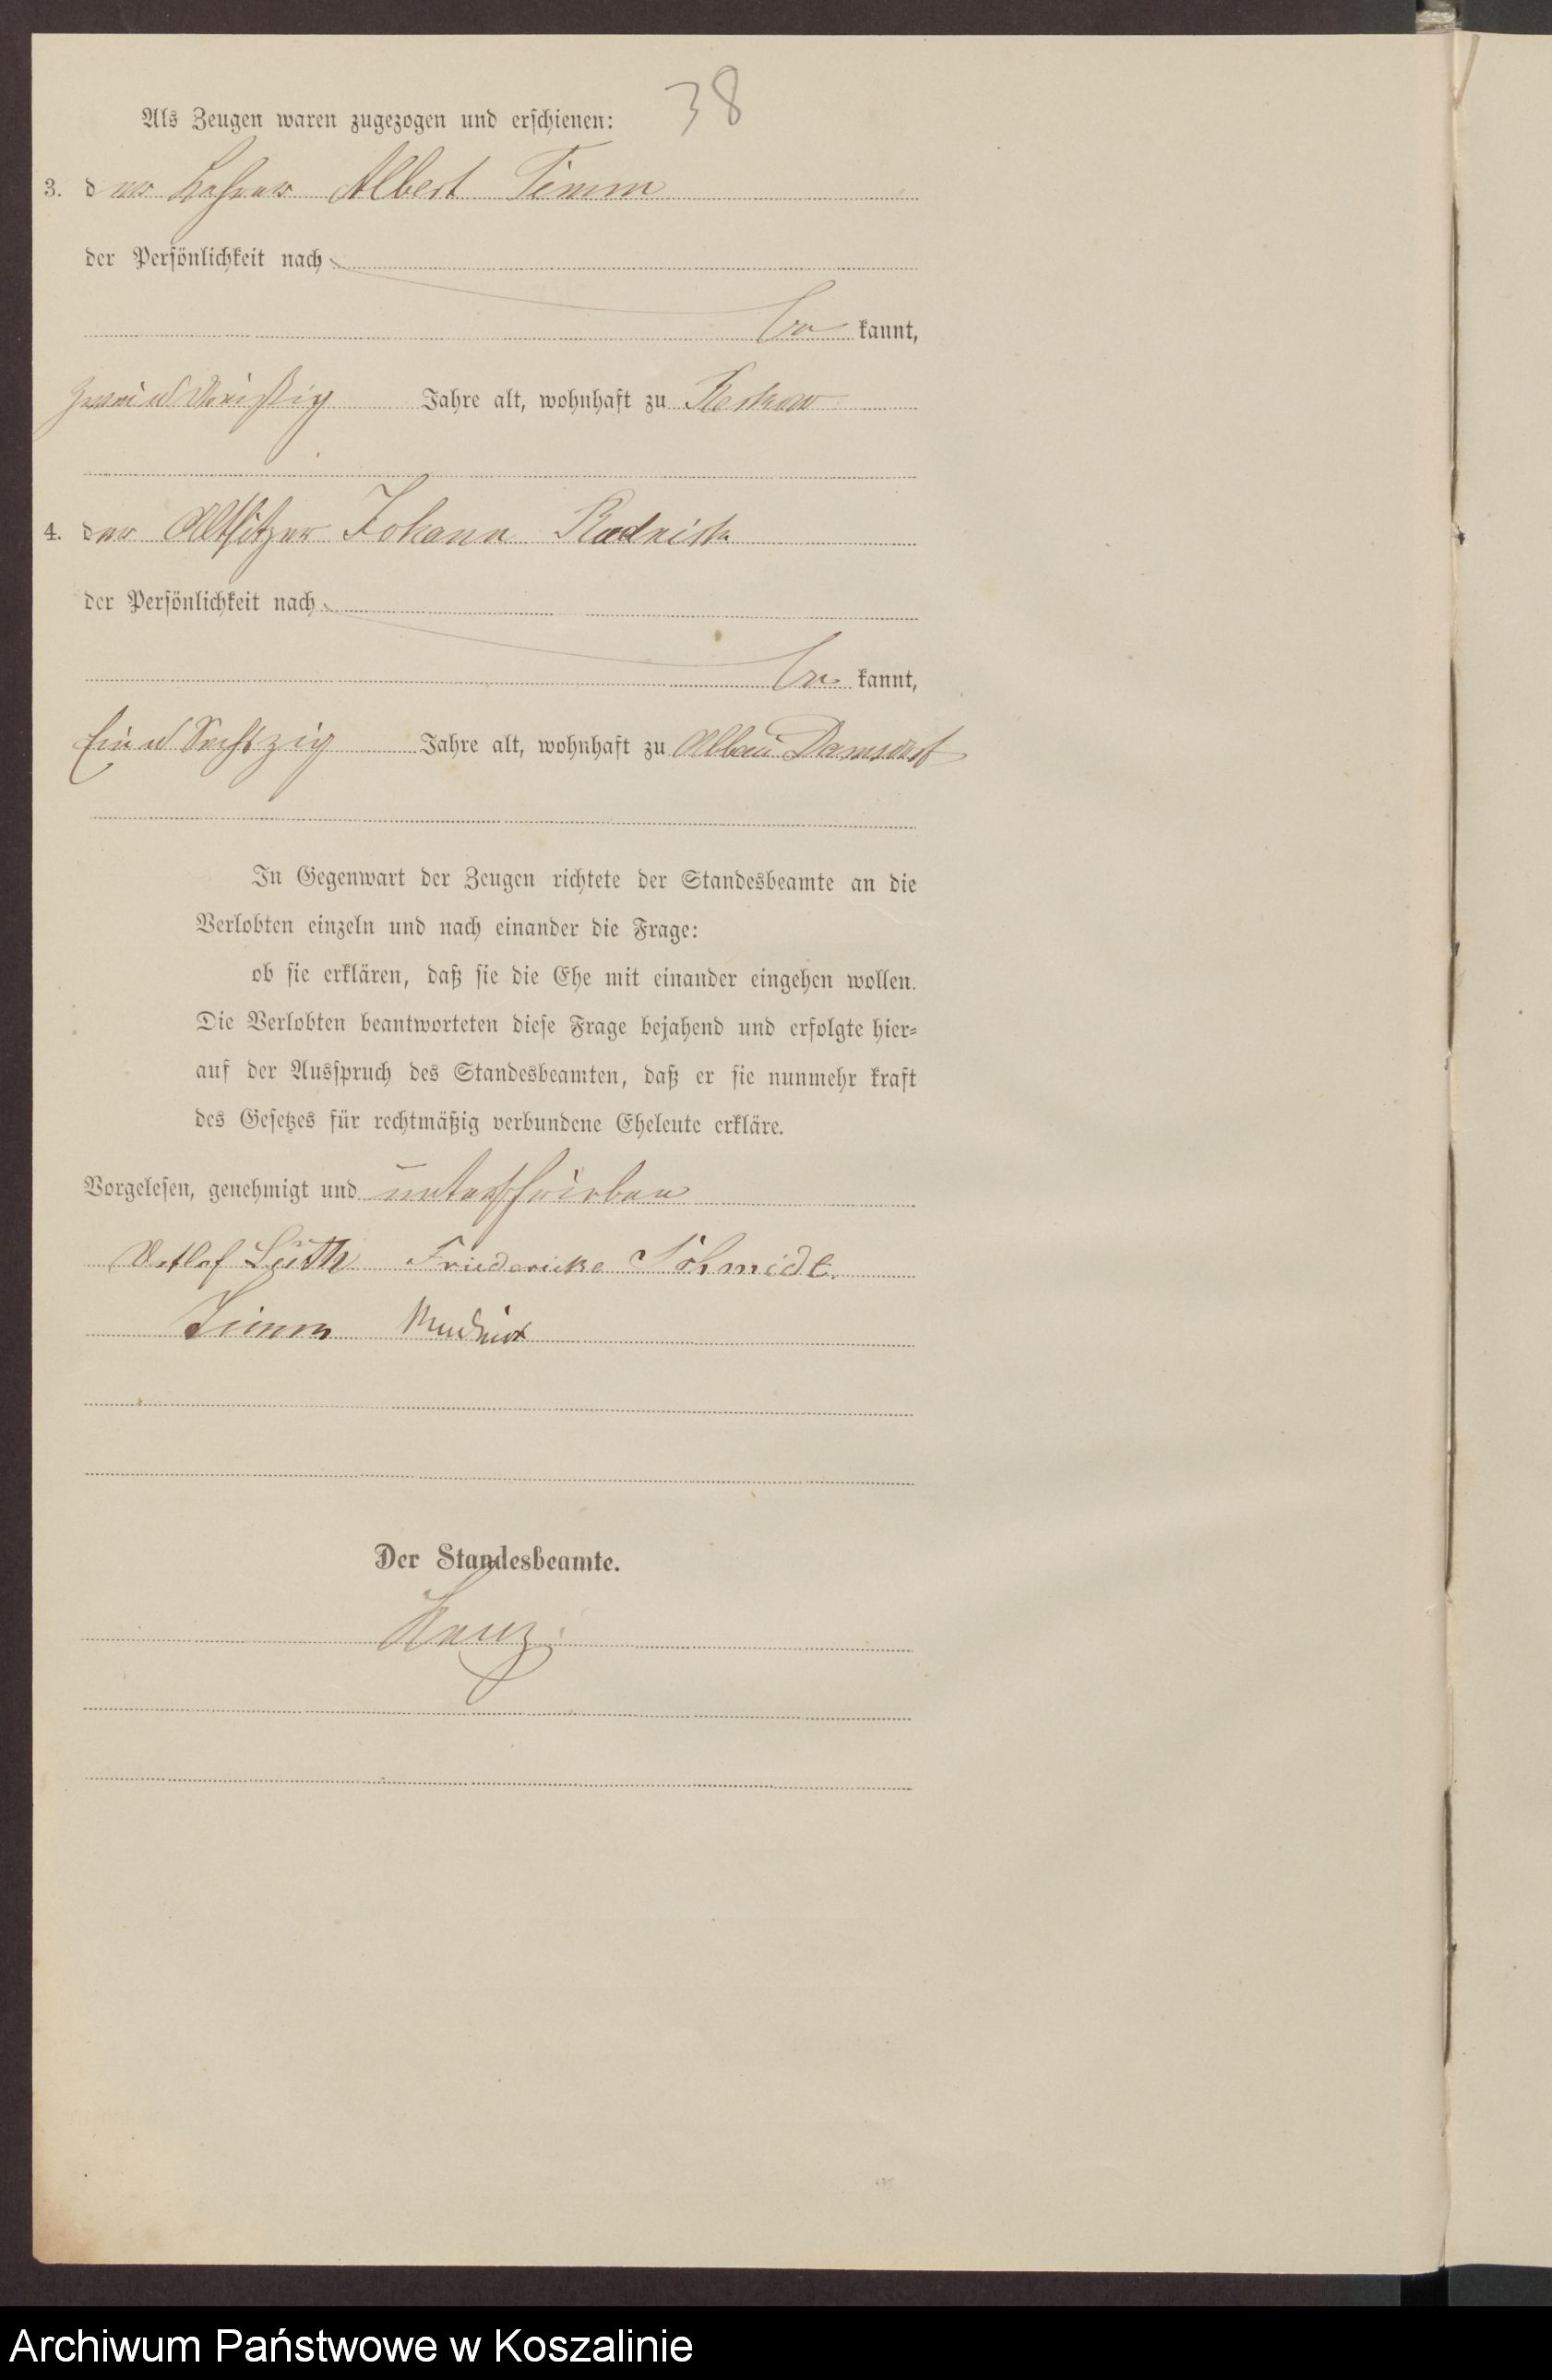 38
Als Zeugen waren zugezogen und erschienen:
3. der Lehrer Albert Timm
der Persönlichkeit nach
be kannt,
zwei u dreißig Jahre alt, wohnhaft zu Reckow
4. der Altsitzer Johann Radnick
der Persönlichkeit nach
be kannt,
Ein u Sechszig Jahre alt, wohnhaft zu Abbau Damsdorf
In Gegenwart der Zeugen richtete der Standesbeamte an die
Verlobten einzeln und nach einander die Frage:
ob sie erklären, daß sie die Ehe mit einander eingehen wollen.
Die Verlobten beantworteten diese Frage bejahend und erfolgte hier=
auf der Ausspruch des Standesbeamten, daß er sie nunmehr kraft
des Gesetzes für rechtmäßig verbundene Eheleute erkläre.
Vorgelesen, genehmigt und unterschrieben
Detlof Lüth Friedericke Schmidt.
Timm
Der Standesbeamte.
Archiwum Państwowe w Koszalinie